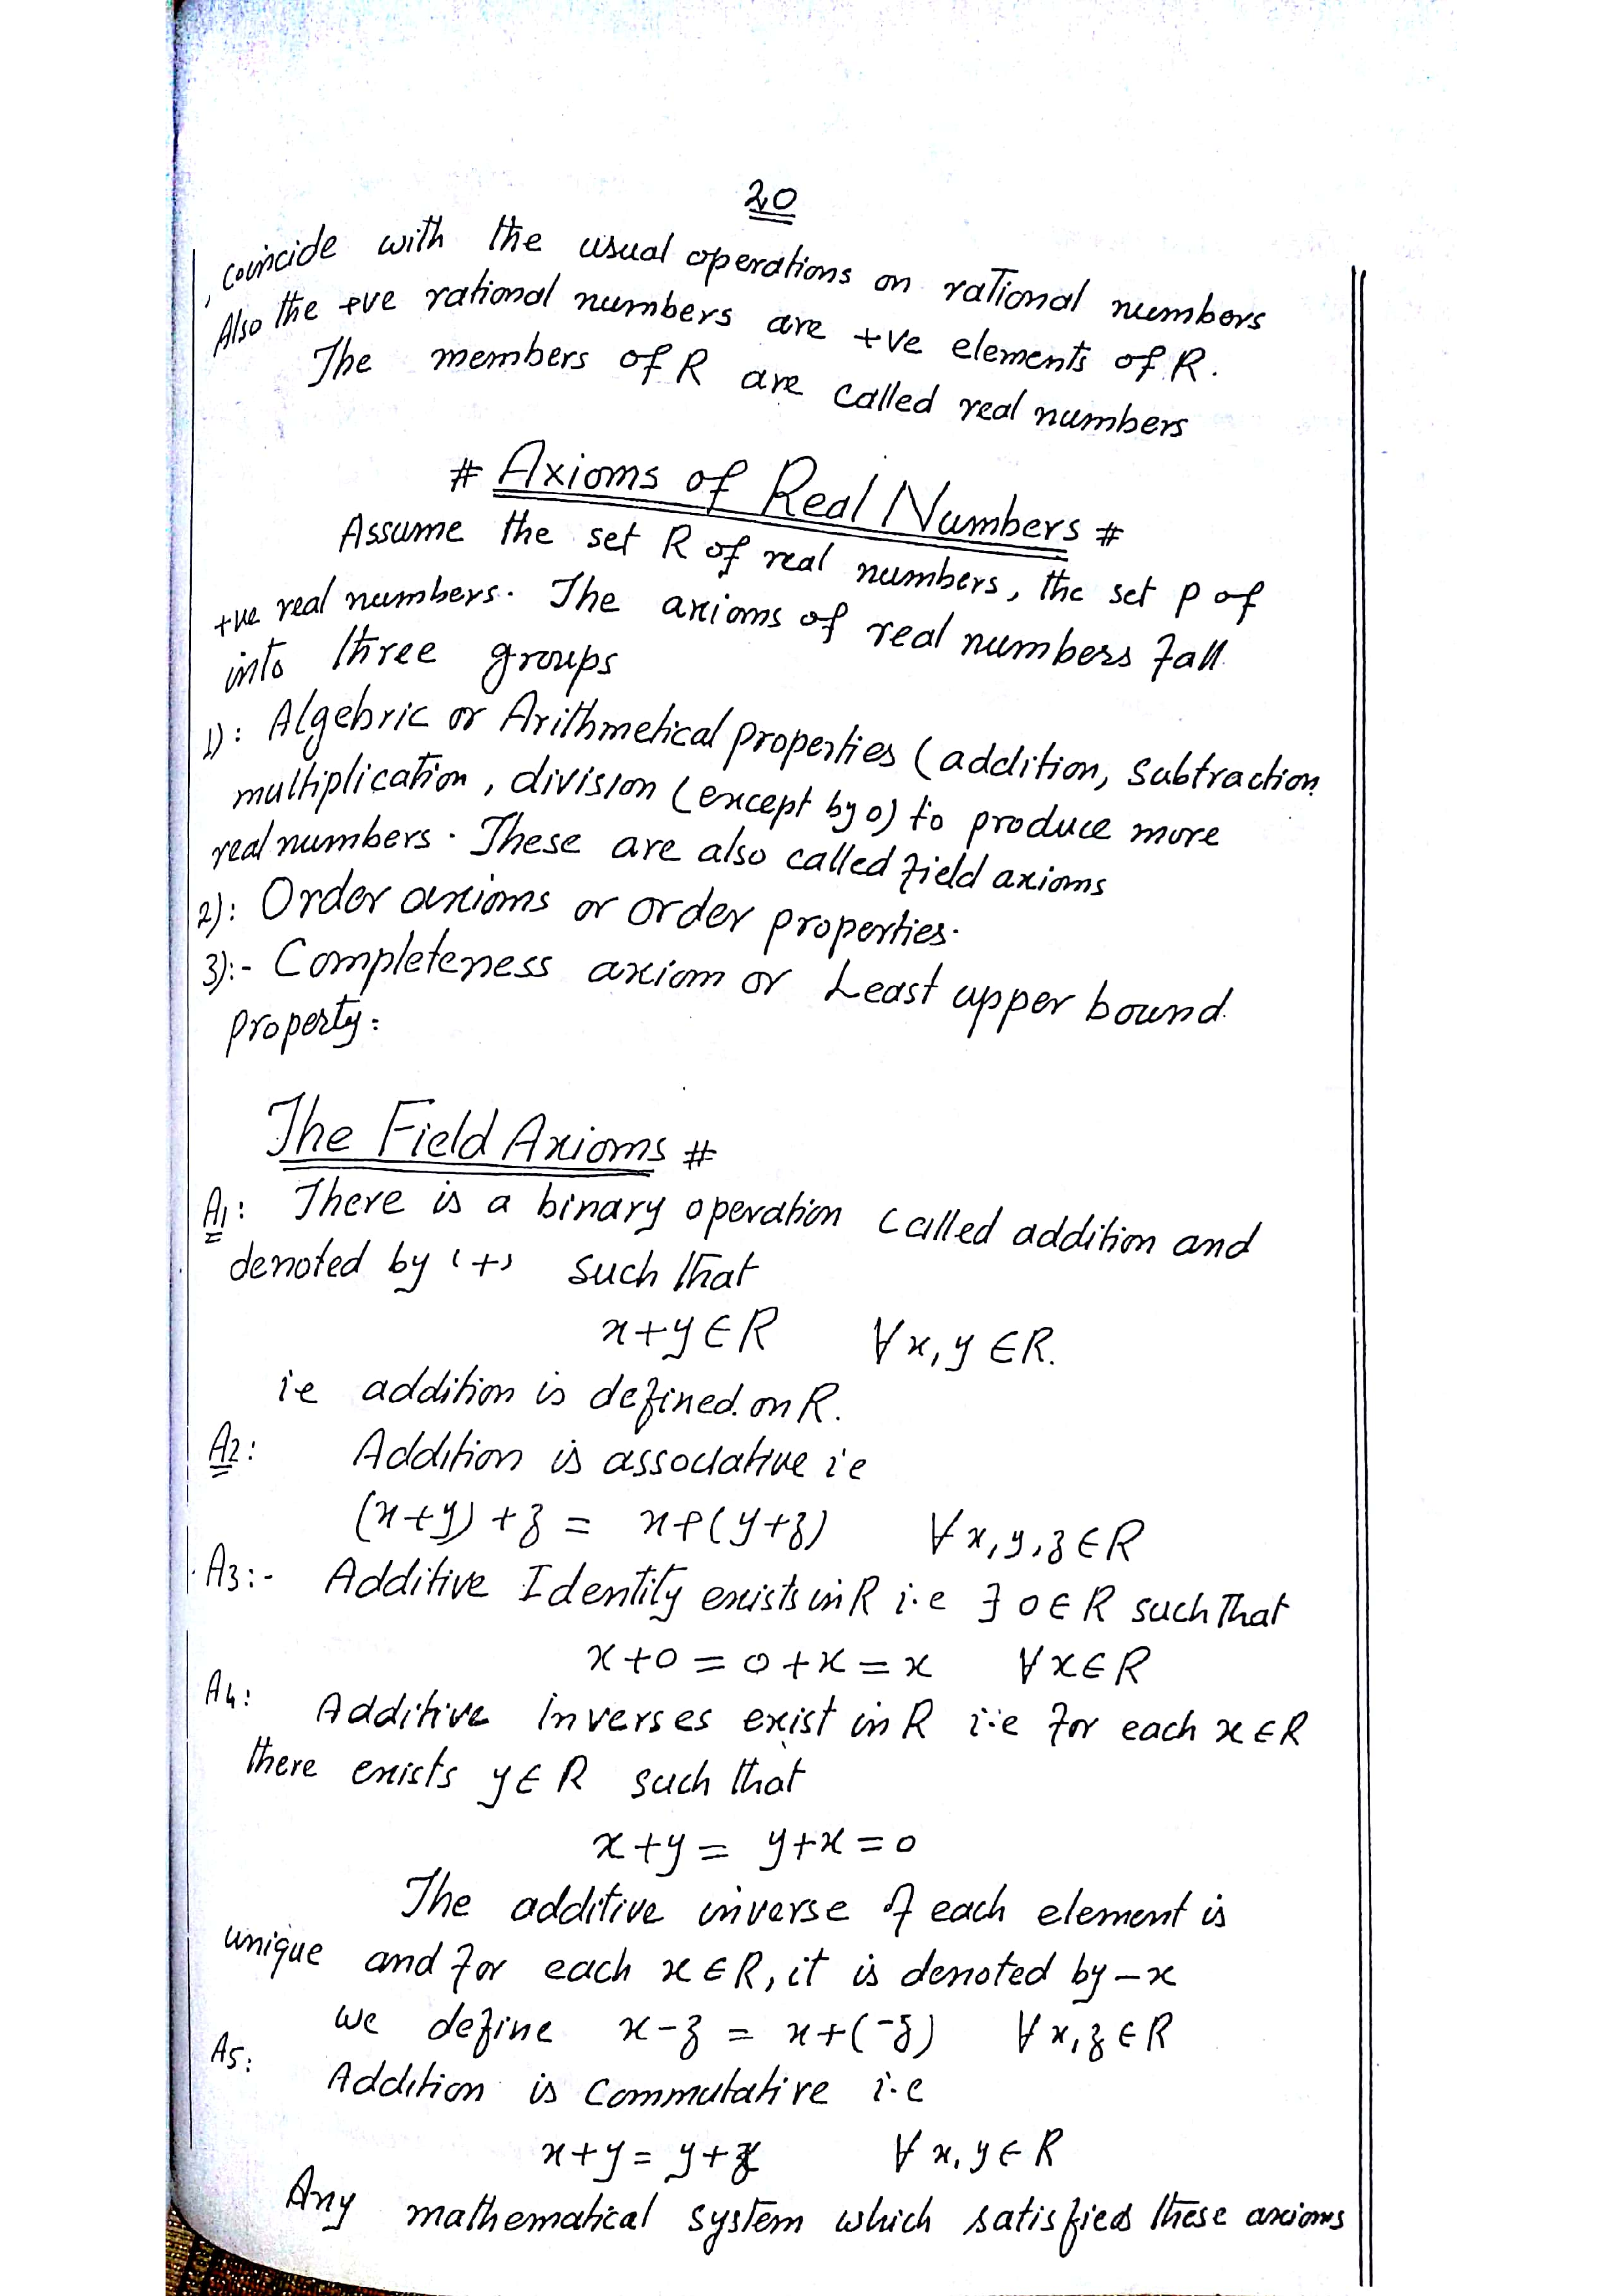 20
coincide with the usual operations on rational numbers
Also the +ve rational numbers are +ve elements of R.
The members of R are called real numbers
# Axioms of Real Numbers #
Assume the set R of real numbers, the set P of
+ve real numbers. The axioms of real numbers fall
into three groups
1): Algebric or Arithmetical properties (addition, subtraction
multiplication, division (except by 0) to produce more
real numbers. These are also called field axioms
2): Order axioms or order properties.
3):- Completeness axiom or Least upper bound
property:
The Field Axioms #
A1: There is a binary operation called addition and
denoted by '+' such that
x+y∈R ∀x,y∈R.
ie addition is defined on R.
A2: Addition is associative ie
(x+y)+z = x+(y+z) ∀x,y,z∈R
A3:- Additive Identity exists in R i.e ∃ 0∈R such that
x+0=0+x=x ∀x∈R
A4: Additive inverses exist in R i.e for each x∈R
there exists y∈R such that
x+y = y+x=0
The additive inverse of each element is
unique and for each x∈R, it is denoted by -x
we define x-z = x+(-z) ∀x,z∈R
A5: Addition is commutative i.e
x+y = y+x ∀x,y∈R
Any mathematical system which satisfies these axioms